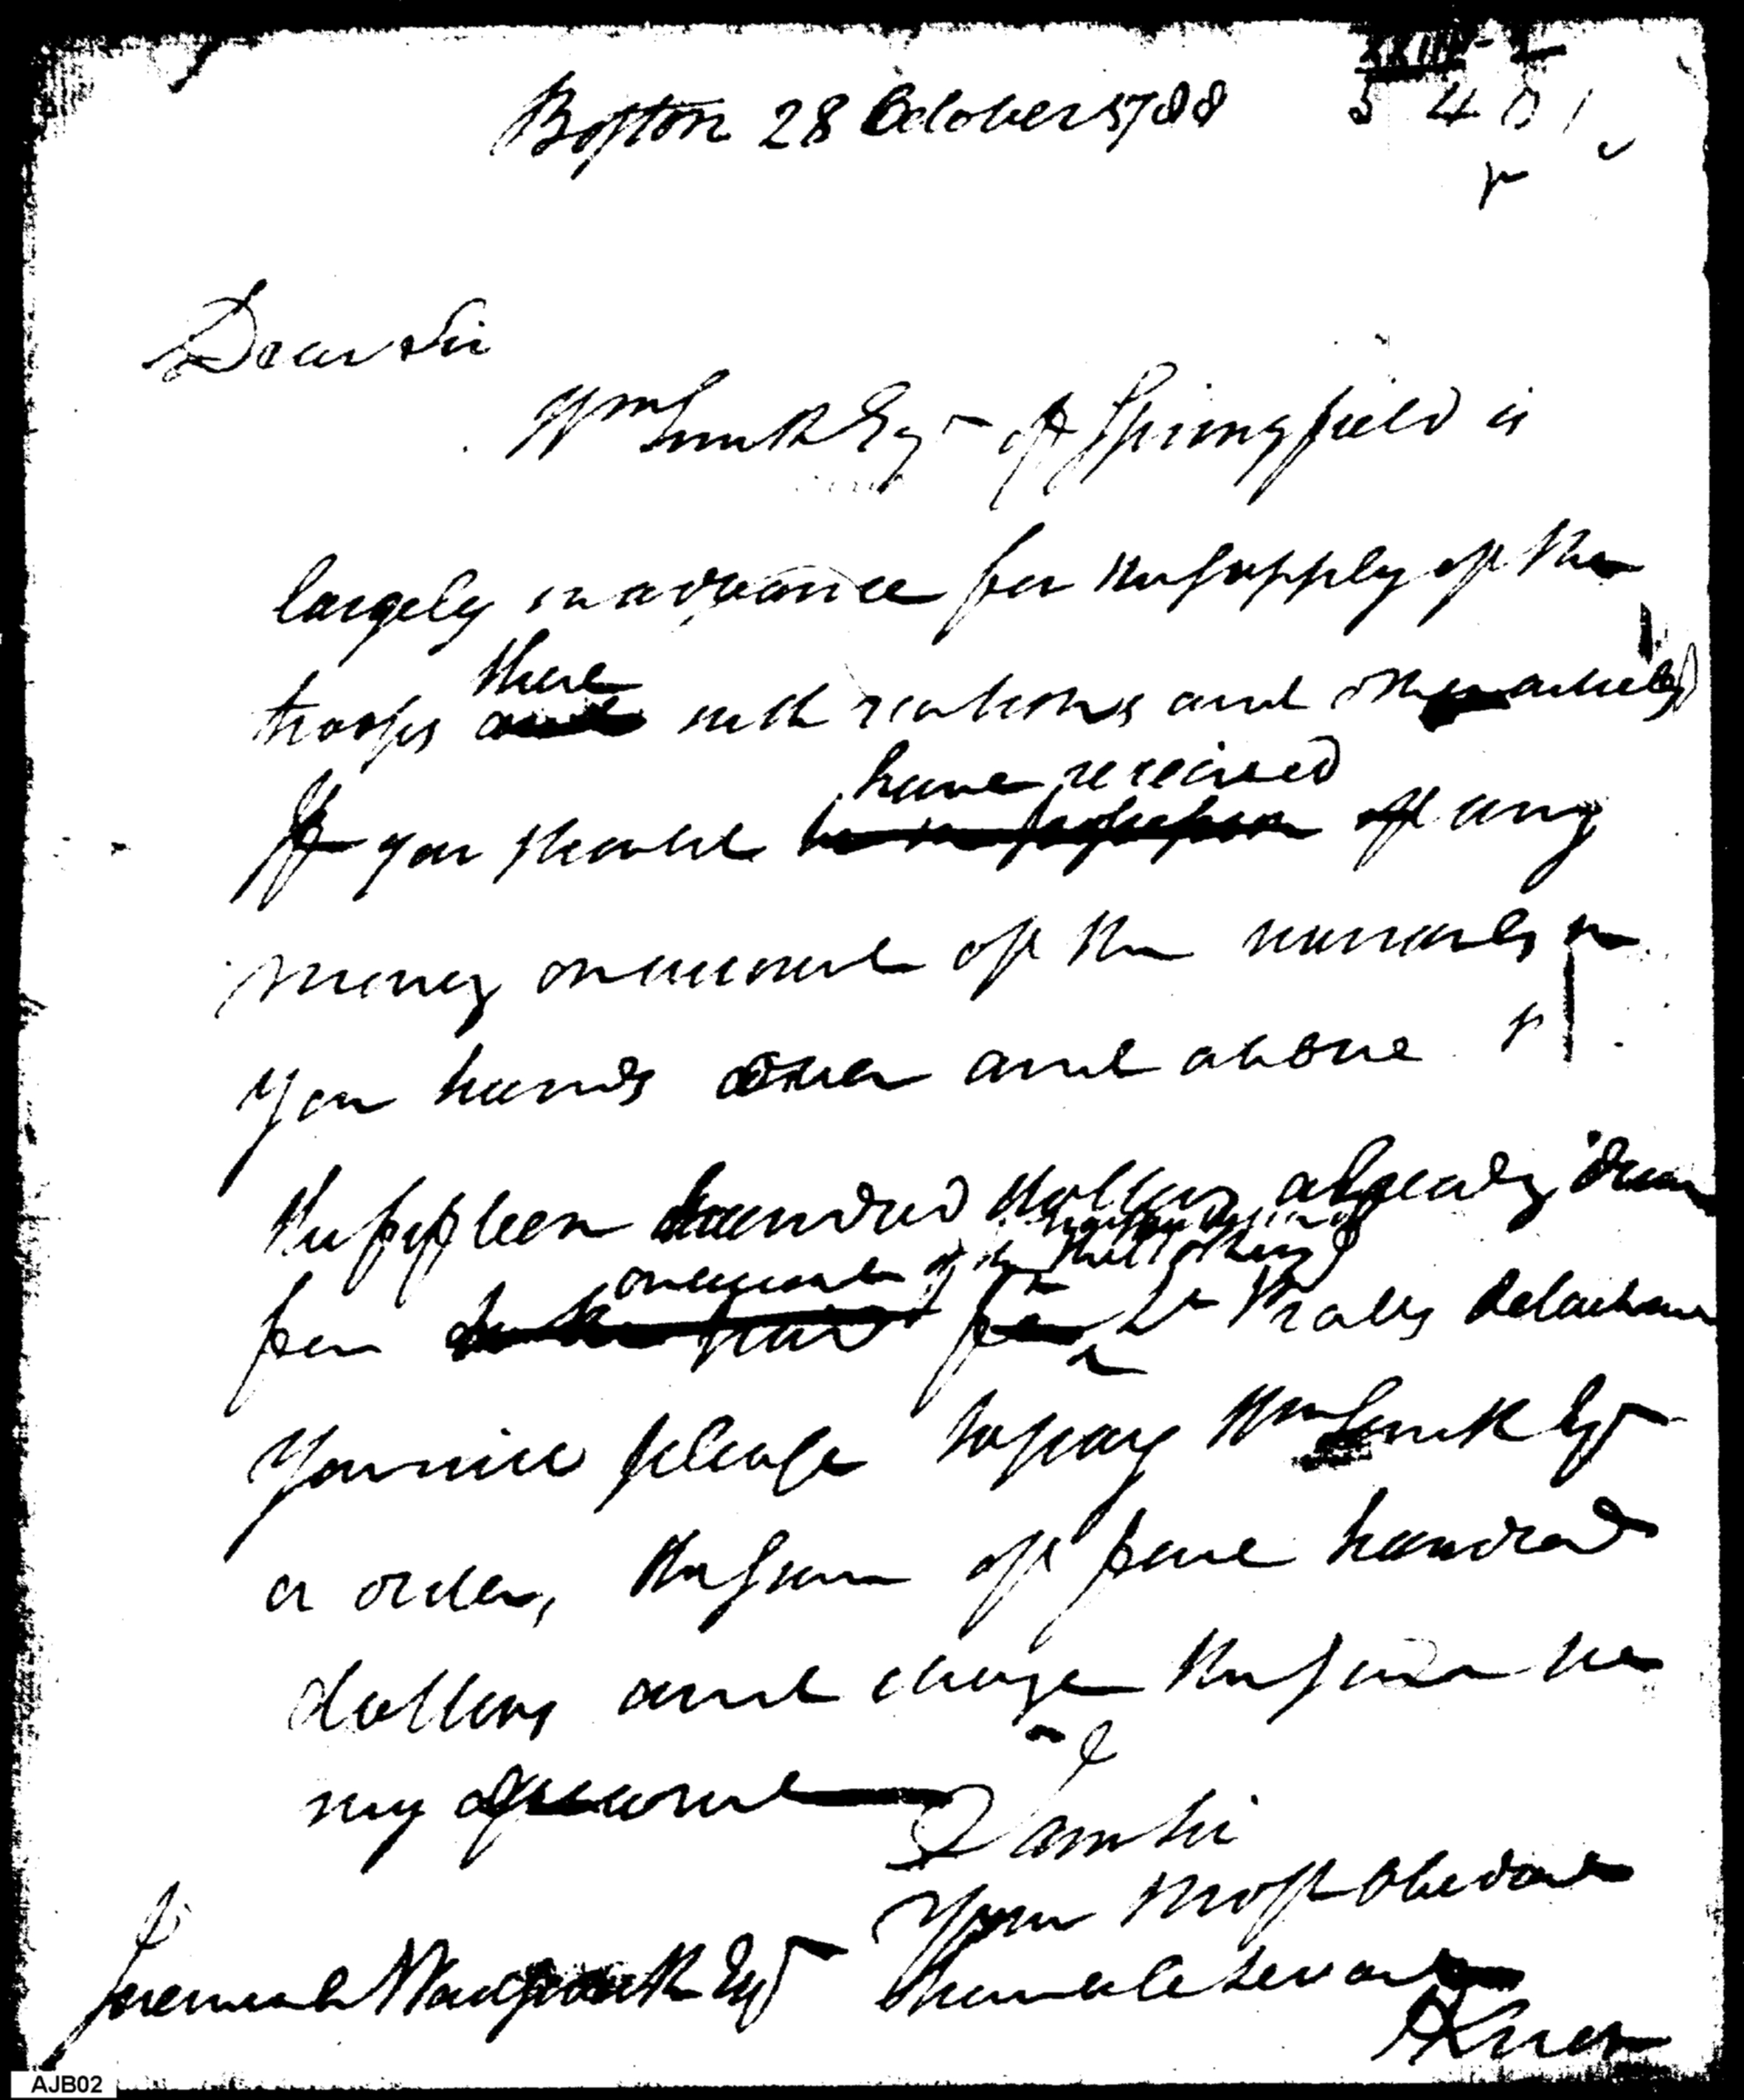 XXIII-1
Boston 28 October 1788
5 4 0 1
Dear Sir
Wm Smith Esqr of Springfield is
largely in advance for the supply of the
there
troops and with rations and other articles
have received
If you should be in possession of any
money on account of the warrants in
your hands over and above
the fifteen hundred dollars already drawn
on account of the
for Lt Pratts detachment
you will please to pay Wm Smith Esqr
or order, the sum of five hundred
dollars and charge the same to
my account
I am Sir
Your most obedient
humble servant
HKnox
Jeremiah Wadsworth Esqr
AJB02